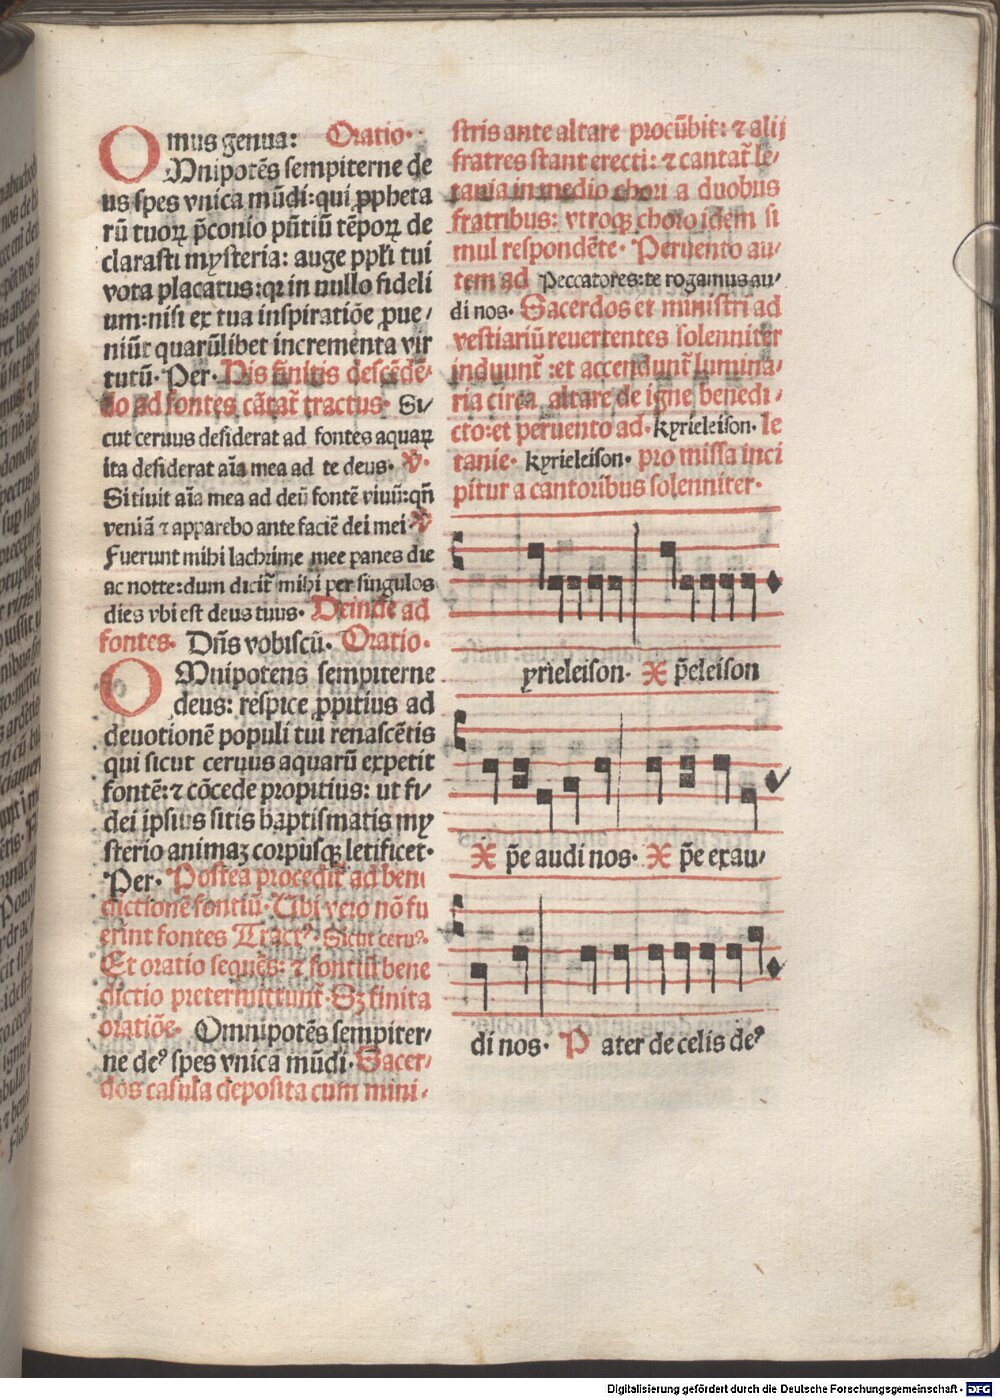 mus genua: Oratio.
OMnipotẽs sempiterne de
us spes vnica mũdi: qui ꝓpheta
rũ tuoꝝ p̃conio pñtiũ tẽpoꝝ de
clarasti mysteria: auge pp̄li tui
vota placatus: qꝛ in nullo fideli
um: nisi ex tua inspiratiõe ꝓue/
niũt quarũlibet incrementa vir
tutũ. Per. His finitis descẽdẽ/
do ad fontes cãtat̃ tractus. Si/
cut ceruus desiderat ad fontes aquaꝝ
ita desiderat aĩa mea ad te deus. ℣.
Sitiuit aĩa mea ad deũ fontẽ viuũ: qñ
veniã ⁊ apparebo ante faciẽ dei mei ℣
Fuerunt mihi lachrime mee panes die
ac notte: dum dicit̃ mihi per singulos
dies vbi est deus tuus. Deinde ad
fontes. Dñs vobiscũ. Oratio.
OMnipotens sempiterne
deus: respice ꝓpitius ad
deuotionẽ populi tui renascẽtis
qui sicut ceruus aquarũ expetit
fontẽ: ⁊ cõcede propitius: ut fi/
dei ipsius sitis baptismatis my
sterio animaꝫ corpusqꝫ letificet.
Per. Postea procedit̃ ad beni
dictionẽ fontiũ. Ubi vero nõ fu
erint fontes Tractꝰ. Sicut ceruꝰ.
Et oratio sequẽs: ⁊ fontiũ bene
dictio pretermittunt̃. Sꝫ finita
oratiõe. Omnipotẽs sempiter/
ne deꝰ spes vnica mũdi. Sacer/
dos casula deposita cum mini/
stris ante altare procũbit: ⁊ alij
fratres stant erecti: ⁊ cantat̃ le/
tania in medio chori a duobus
fratribus: vtroqꝫ choro idem si
mul respondẽte. Peruento au/
tem ad Peccatores: te rogamus au/
di nos. Sacerdos et ministri ad
vestiariũ reuertentes solenniter
induunt̃: et accendunt̃ lumina/
ria circa altare de igne benedi/
cto: et peruento ad. kyrieleison. le
tanie. kyrieleison. pro missa inci
pitur a cantoribus solenniter.
yrieleison. X p̄eleison
X p̄e audi nos. X p̄e exau/
di nos. P ater de celis deꝰ
Digitalisierung gefördert durch die Deutsche Forschungsgemeinschaft - DFG